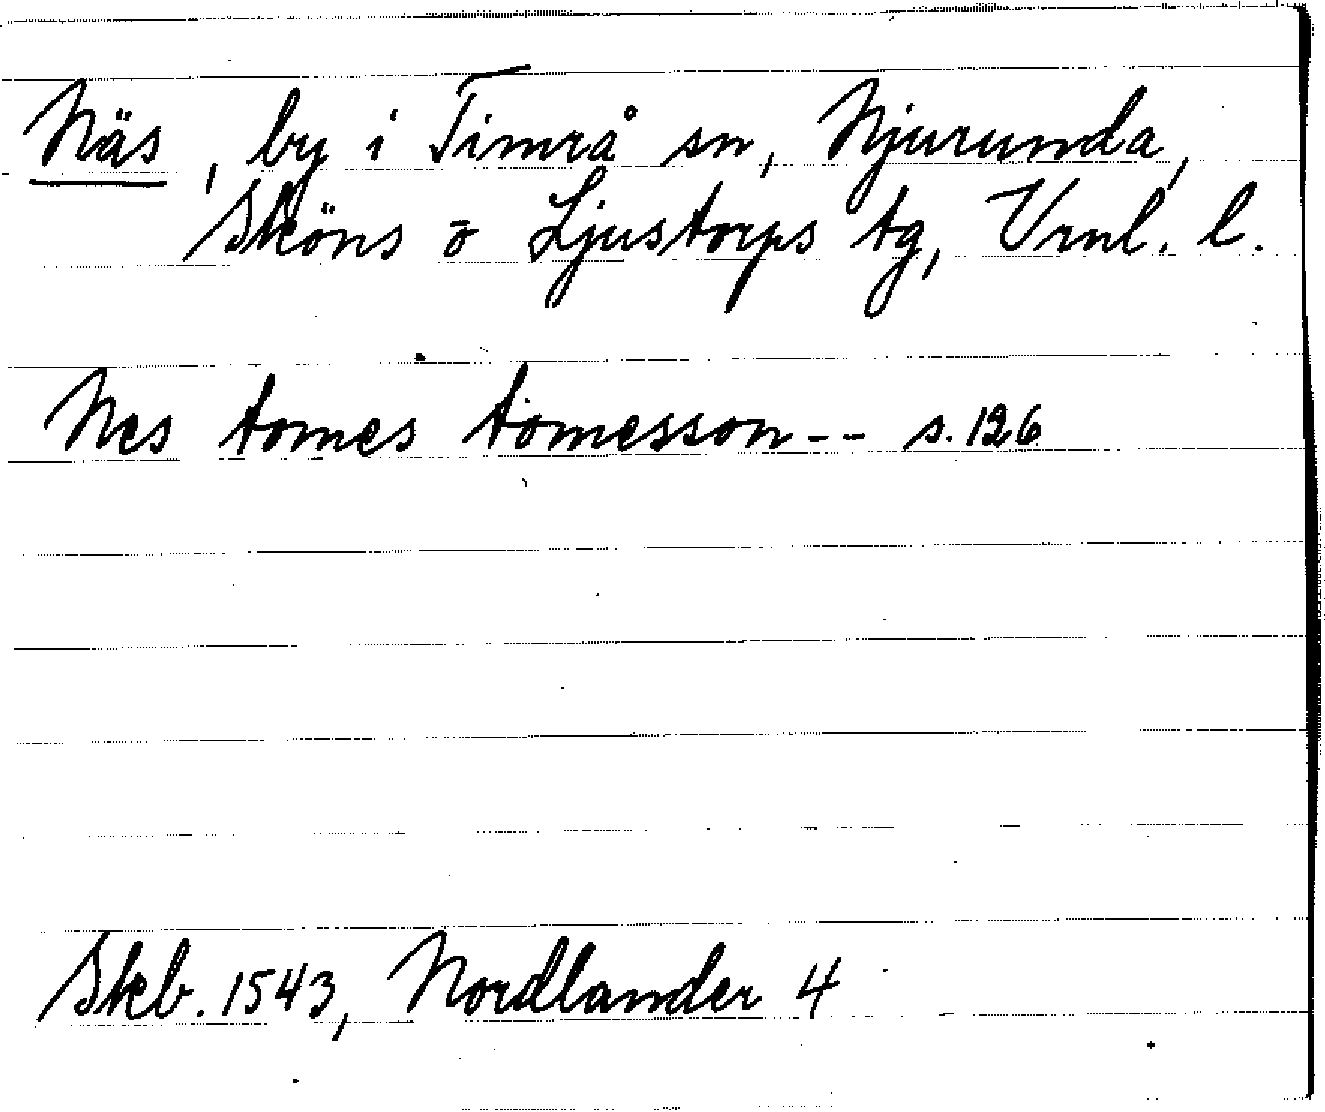 Näs, by i Timrå sn, Njurunda,
Sköns o Ljustorps tg, Vrnl. l.
Nes tomes tomesson-- s.126
Skb. 1543, Nordlander 4